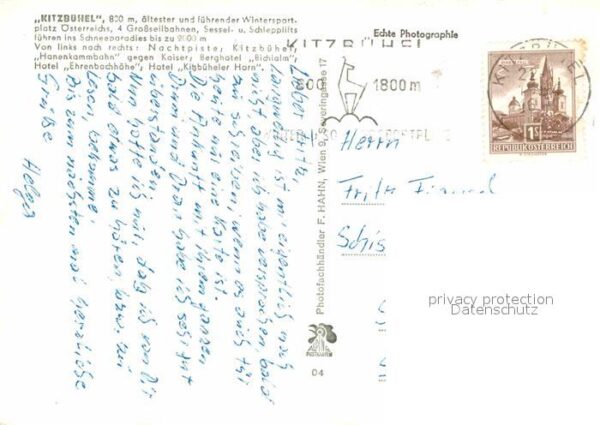 „KITZBÜHEL", 800 m, ältester und führender Wintersport-
platz Österreichs, 4 Großseilbahnen, Sessel- u. Schlepplifts
führen ins Schneeparadies bis zu 2000 m
Von links nach rechts: Nachtpiste, Kitzbühel,
„Hahnenkammbahn" gegen Kaiser; Berghotel „Bichlalm",
Hotel „Ehrenbachhöhe"; Hotel „Kitzbüheler Horn".
Echte Photographie
KITZBÜHEL
800
1800 m
KITZBÜHEL
1S
REPUBLIK ÖSTERREICH
Photofachhändler F. HAHN, Wien 9, Severingasse 17
POSTKARTEN
04
Lieber Fritz,
ist mir eigentlich noch
aber ich habe versprochen, bald
zu schreiben, wenn es auch für
heute nur eine Karte ist.
Die Ankunft mit Ihrem ganzen
Drum und Dran habe ich sehr gut
überstanden.
Nun hoffe ich nur, daß ich von Dir
bald etwas zu hören, bzw. zu
lesen bekomme.
Bis zum nächsten mal herzliche
Grüße
Helga
Herrn
Fritz
privacy protection
Datenschutz